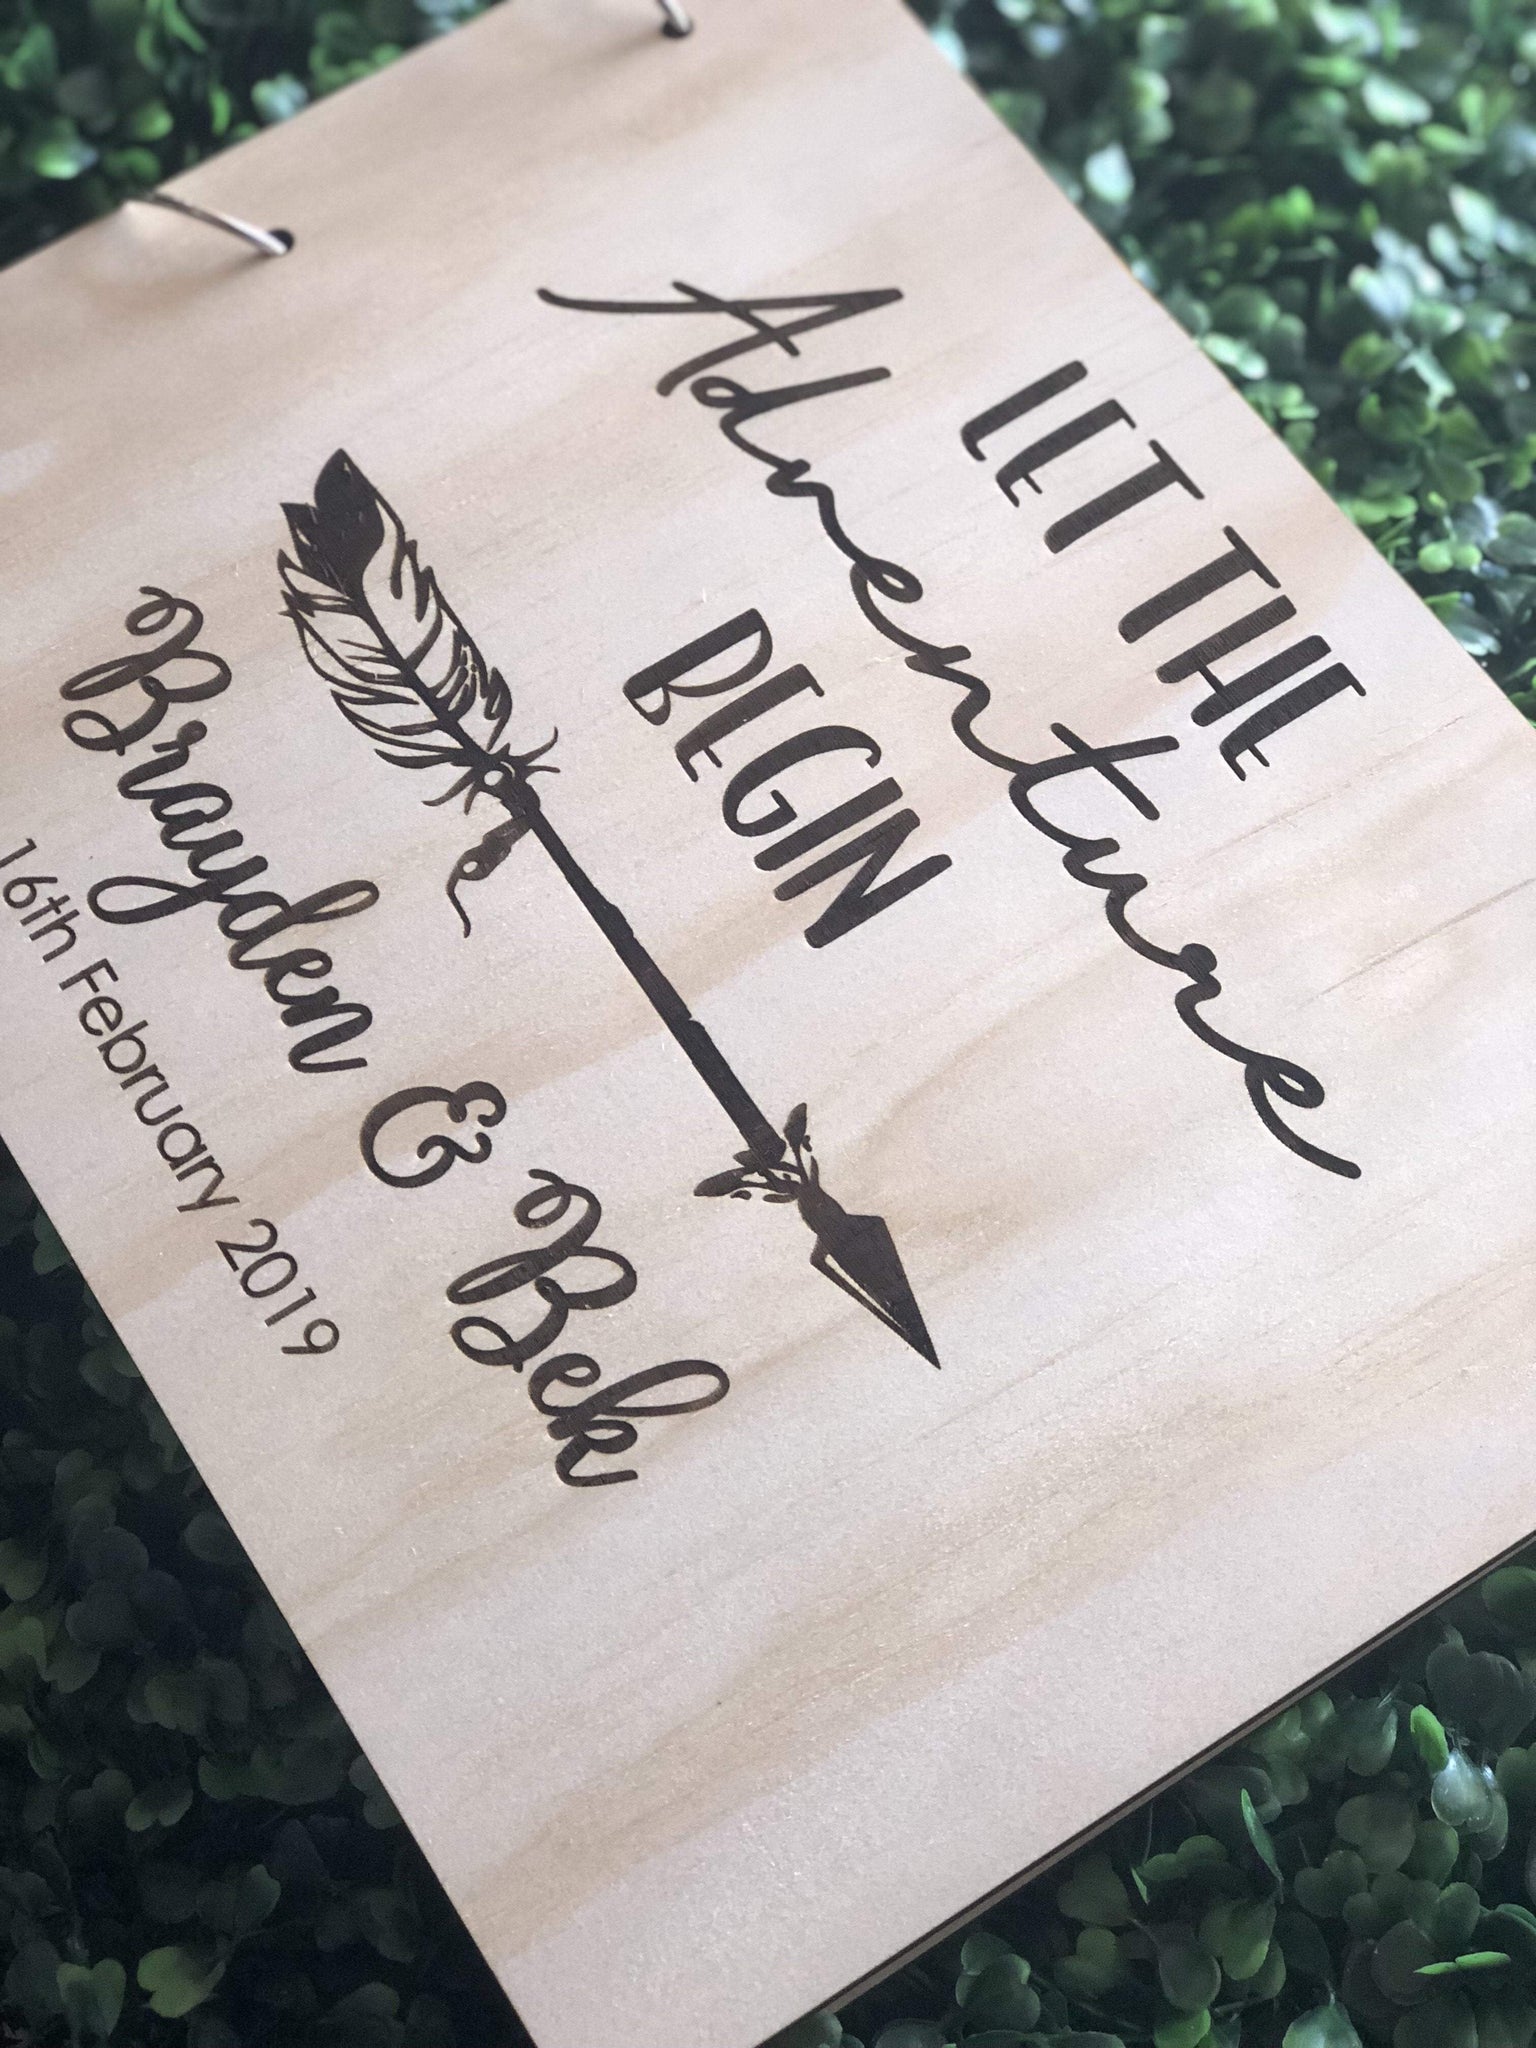 LET THE
Adventure
BEGIN
Brayden & Bek
16th February 2019